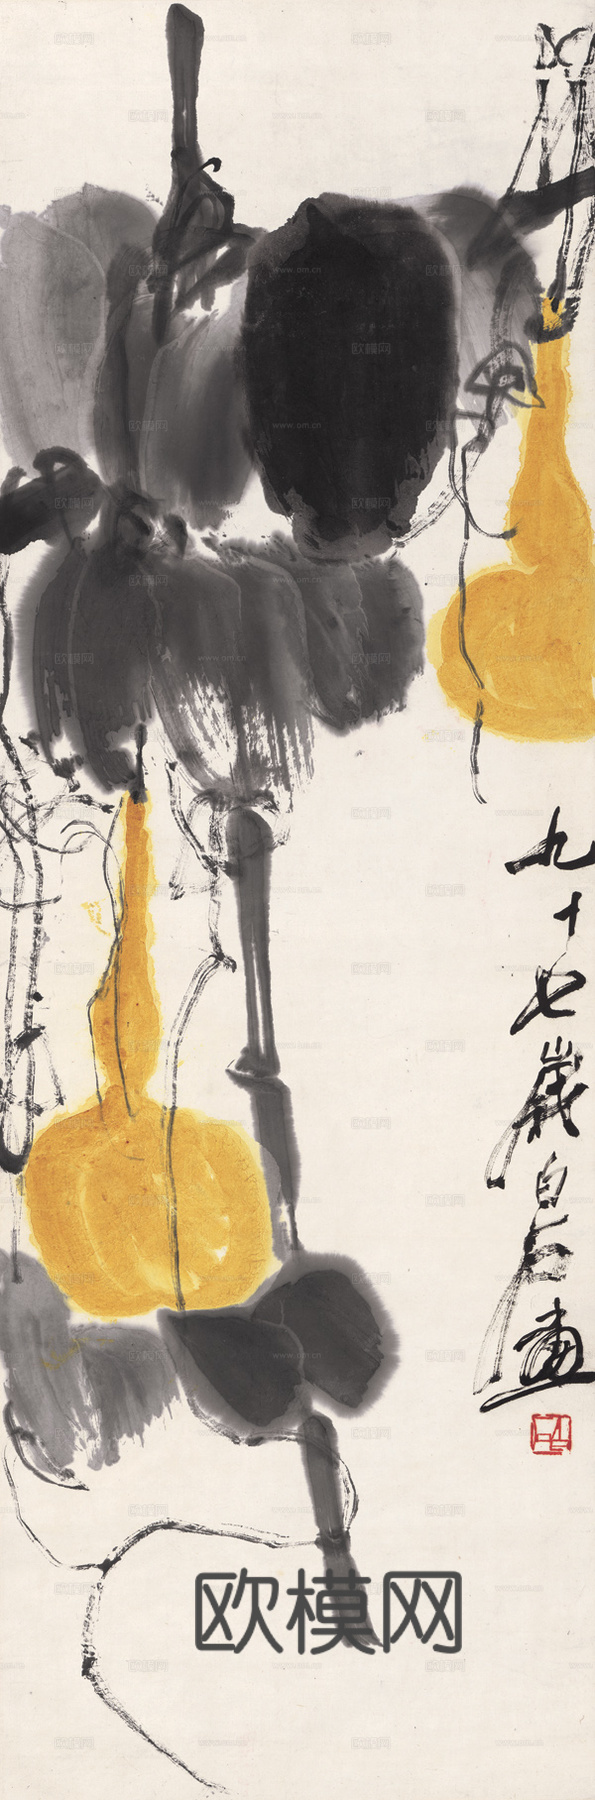 九十七歲白石画
欧模网